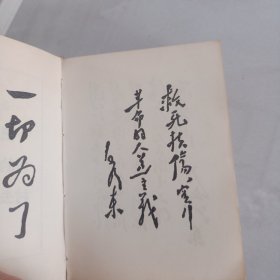 救死扶伤，实行
革命的人道主义
毛泽东
一切为了